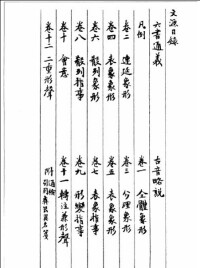 文源目錄
六書通義 古音略說
凡例 卷一 全體象形
卷二 連延象形 卷三 分理象形
卷四 表象象形 卷五 表象象形
卷六 殽列象形 卷七 表象指事
卷八 殽列指事 卷九 形變指事
卷十 會意 卷十一 轉注兼形聲
卷十二 二重形聲 附 通檢